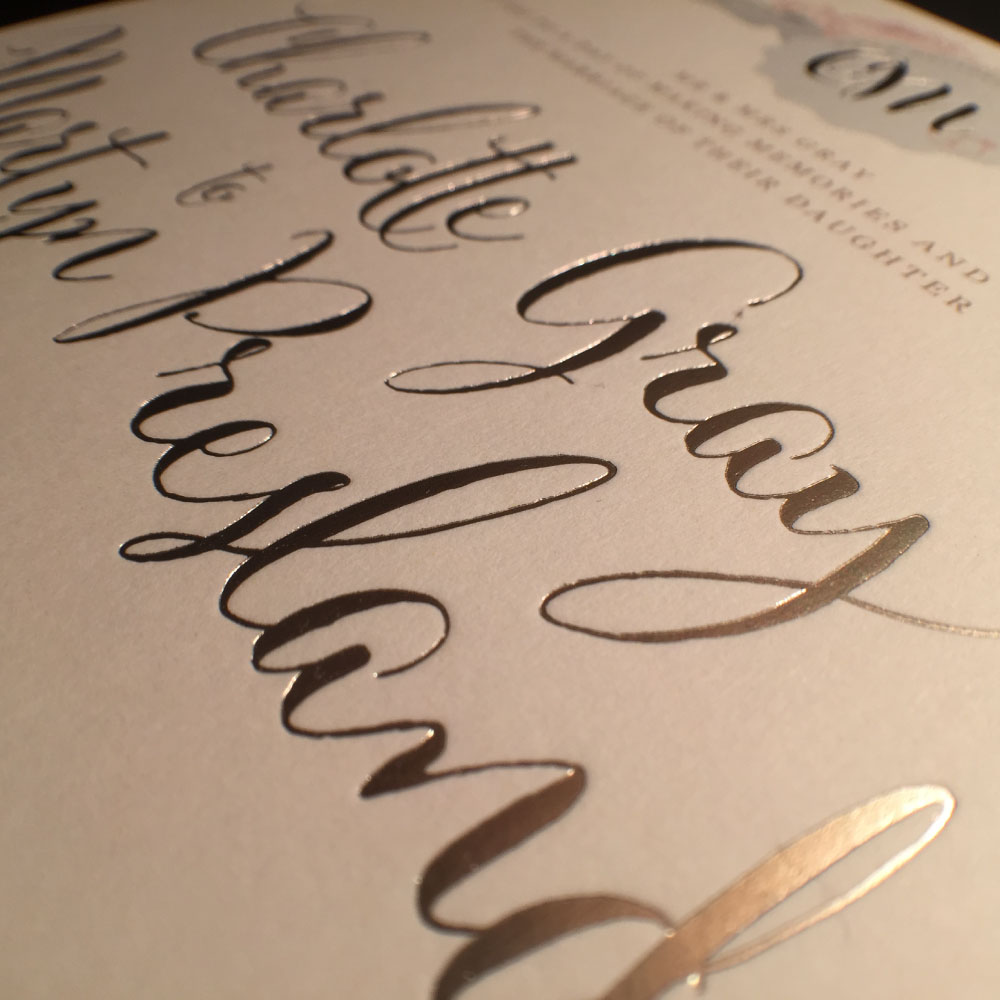 CM
MR & MRS GRAY
A DAY OF MAKING MEMORIES AND
THE MARRIAGE OF THEIR DAUGHTER
Charlotte Gray
to
Martyn Presland